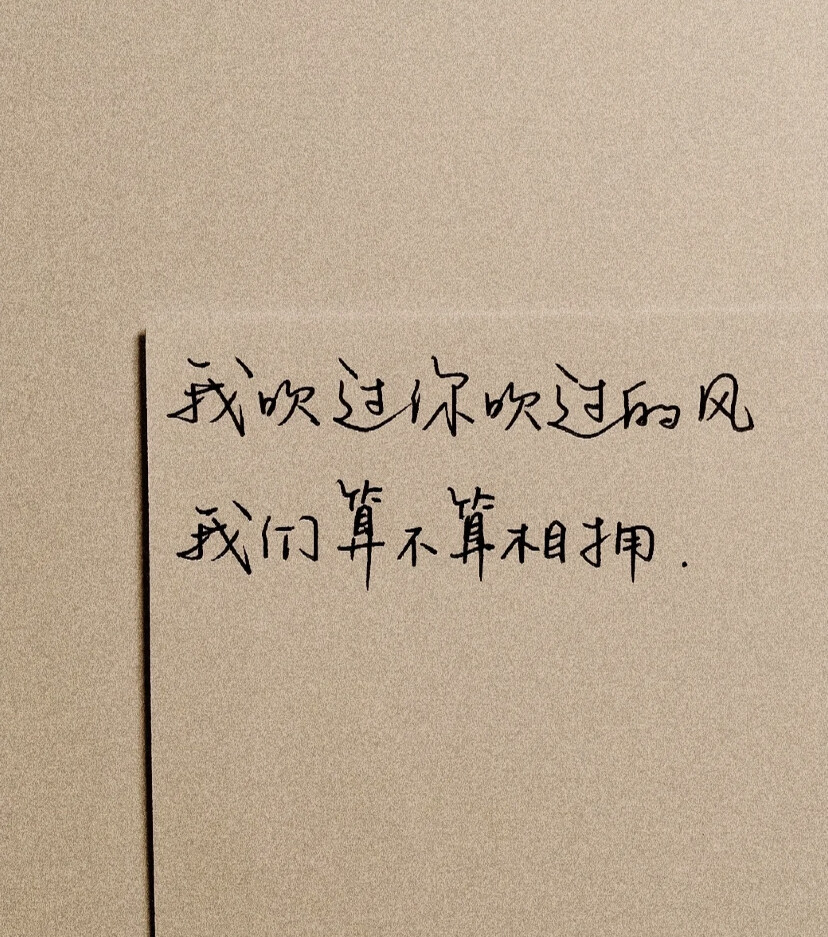 我吹过你吹过的风
我们算不算相拥.